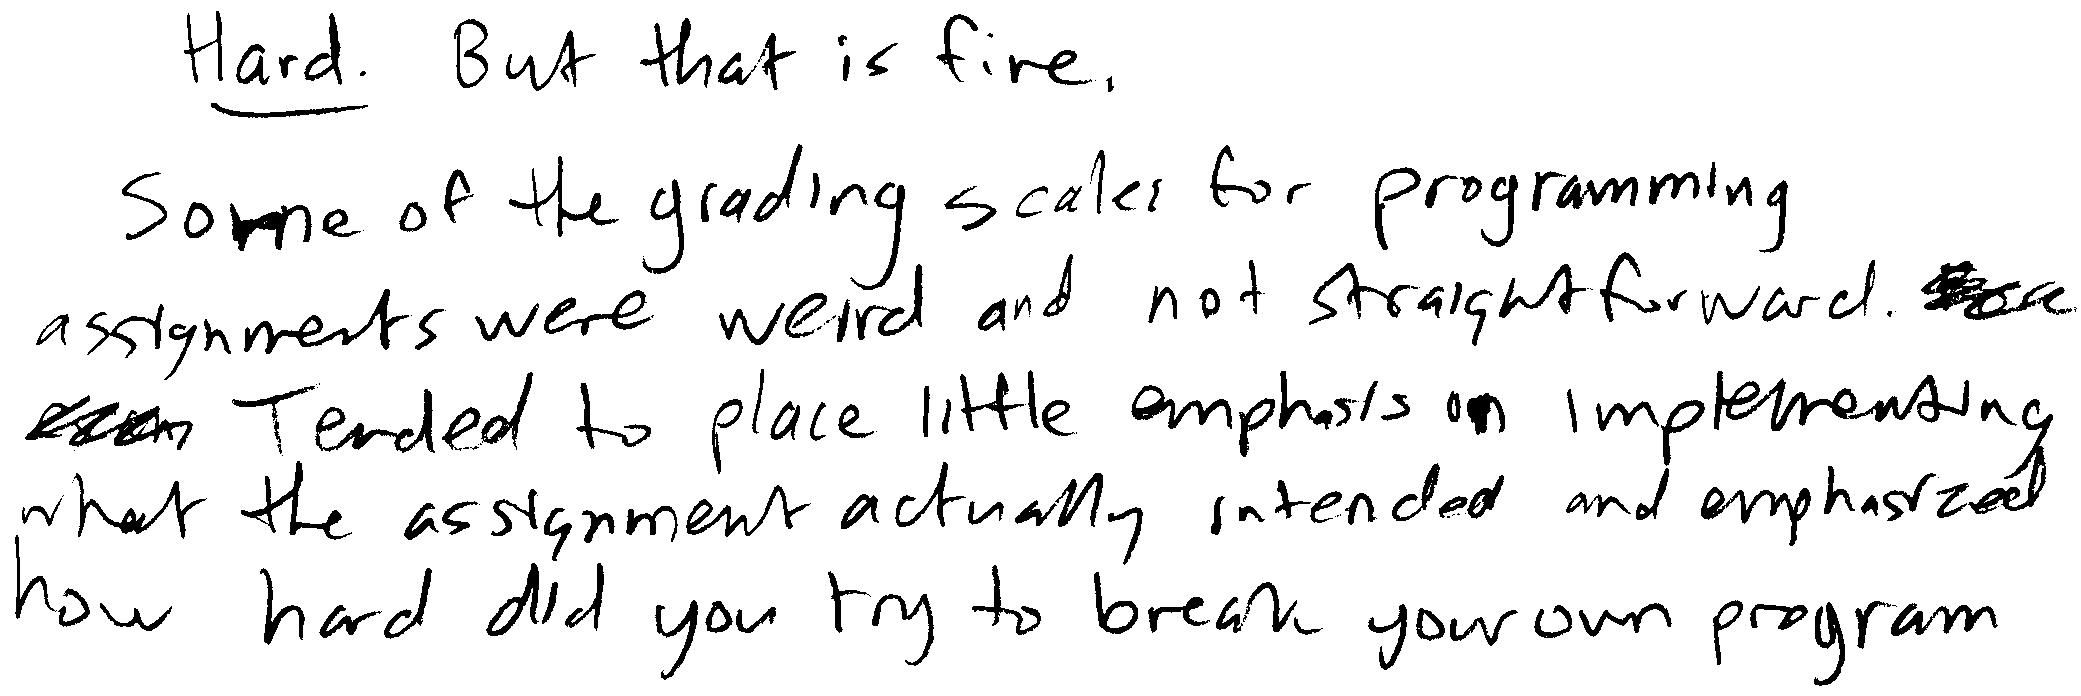 Hard. But that is fine.
Some of the grading scales for programming
assignments were weird and not straightforward.
Tended to place little emphasis on implementing
what the assignment actually intended and emphasized
how hard did you try to break your own program